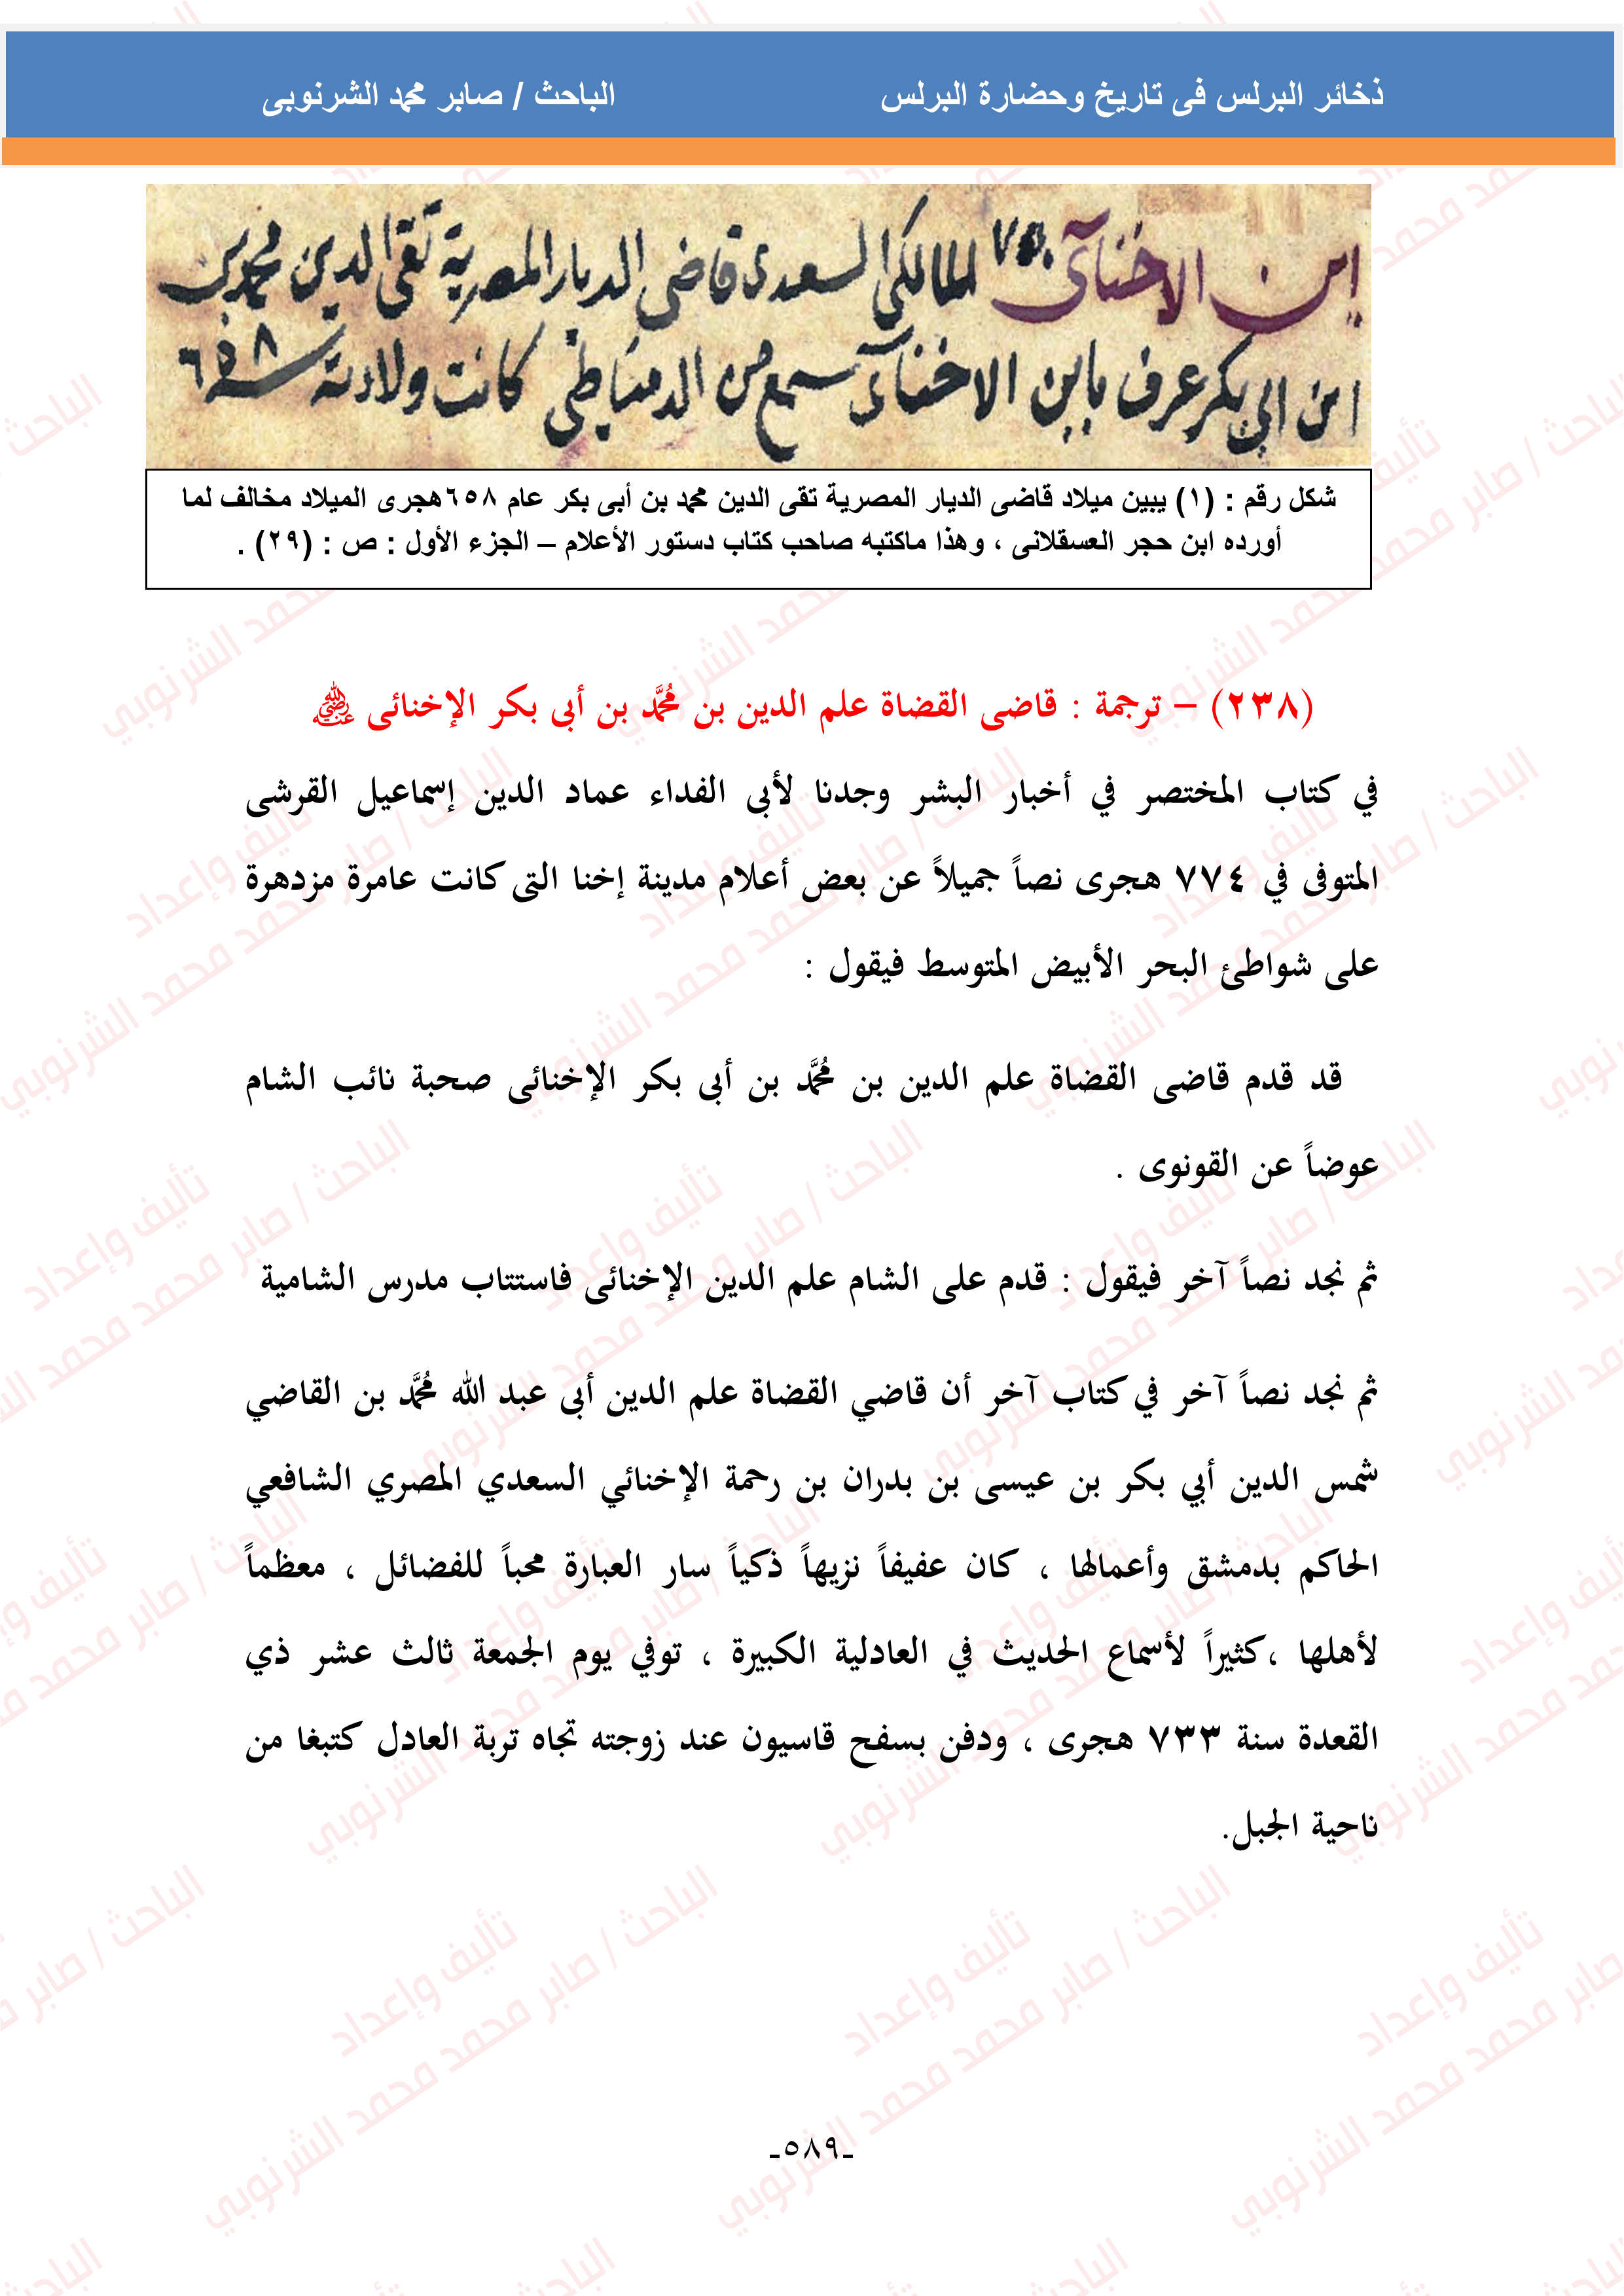 ذخائر البرلس فى تاريخ وحضارة البرلس الباحث / صابر محمد الشرنوبى
ابن الاخنآى ٧٥٠ المالكى السعدى قاضى الديار المصرية تقى الدين محمد بن
ابن ابي بكر عرف بابن الاخنآى سمع من الدمياطى كانت ولادته سنة ٦٥٨
شكل رقم : (١) يبين ميلاد قاضى الديار المصرية تقى الدين محمد بن أبى بكر عام ٦٥٨هجرى الميلاد مخالف لما
أورده ابن حجر العسقلانى ، وهذا ماكتبه صاحب كتاب دستور الأعلام – الجزء الأول : ص : (٢٩) .
(٢٣٨) – ترجمة : قاضى القضاة علم الدين بن مُحمَّد بن أبى بكر الإخنائى رضي الله عنه
في كتاب المختصر في أخبار البشر وجدنا لأبى الفداء عماد الدين إسماعيل القرشى
المتوفى في ٧٧٤ هجرى نصاً جميلاً عن بعض أعلام مدينة إخنا التى كانت عامرة مزدهرة
على شواطئ البحر الأبيض المتوسط فيقول :
قد قدم قاضى القضاة علم الدين بن مُحمَّد بن أبى بكر الإخنائى صحبة نائب الشام
عوضاً عن القونوى .
ثم نجد نصاً آخر فيقول : قدم على الشام علم الدين الإخنائى فاستتاب مدرس الشامية
ثم نجد نصاً آخر في كتاب آخر أن قاضي القضاة علم الدين أبى عبد الله مُحمَّد بن القاضي
شمس الدين أبي بكر بن عيسى بن بدران بن رحمة الإخنائي السعدي المصري الشافعي
الحاكم بدمشق وأعمالها ، كان عفيفاً نزيهاً ذكياً سار العبارة محباً للفضائل ، معظماً
لأهلها ،كثيراً لأسماع الحديث في العادلية الكبيرة ، توفي يوم الجمعة ثالث عشر ذي
القعدة سنة ٧٣٣ هجرى ، ودفن بسفح قاسيون عند زوجته تجاه تربة العادل كتبغا من
ناحية الجبل.
-٥٨٩-
تأليف وإعداد
الباحث / صابر محمد محمد الشرنوبي